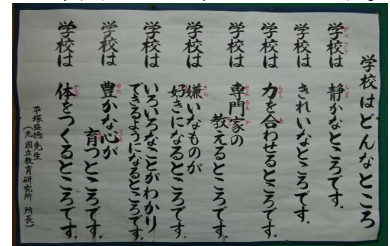 学校はどんなところ
学校は 静かなところです。
学校は きれいなところです。
学校は 力を合わせるところです。
学校は 専門家の
教えるところです。
学校は 嫌いなものが
好きになるところです。
学校は いろいろなことがわかり
できるようになるところです。
学校は 豊かな心が
育つところです。
学校は 体をつくるところです。
平塚益徳先生
(元 国立教育研究所 所長)